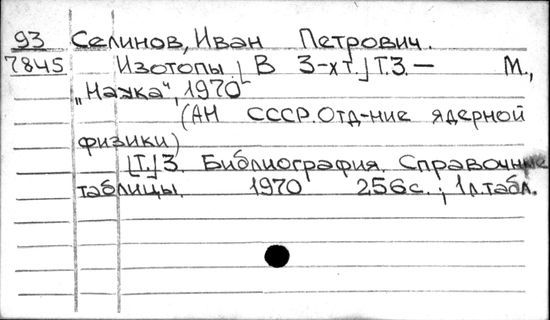 93 Селинов, Иван Петрович.
7845 Изотопы. [В 3-х т.] Т.3. — М.,
„Наука“, 1970
(АН СССР. Отд-ние ядерной
физики)
[Т.] 3. Библиография. Справочные
таблицы. 1970 256с.; 1л.табл.